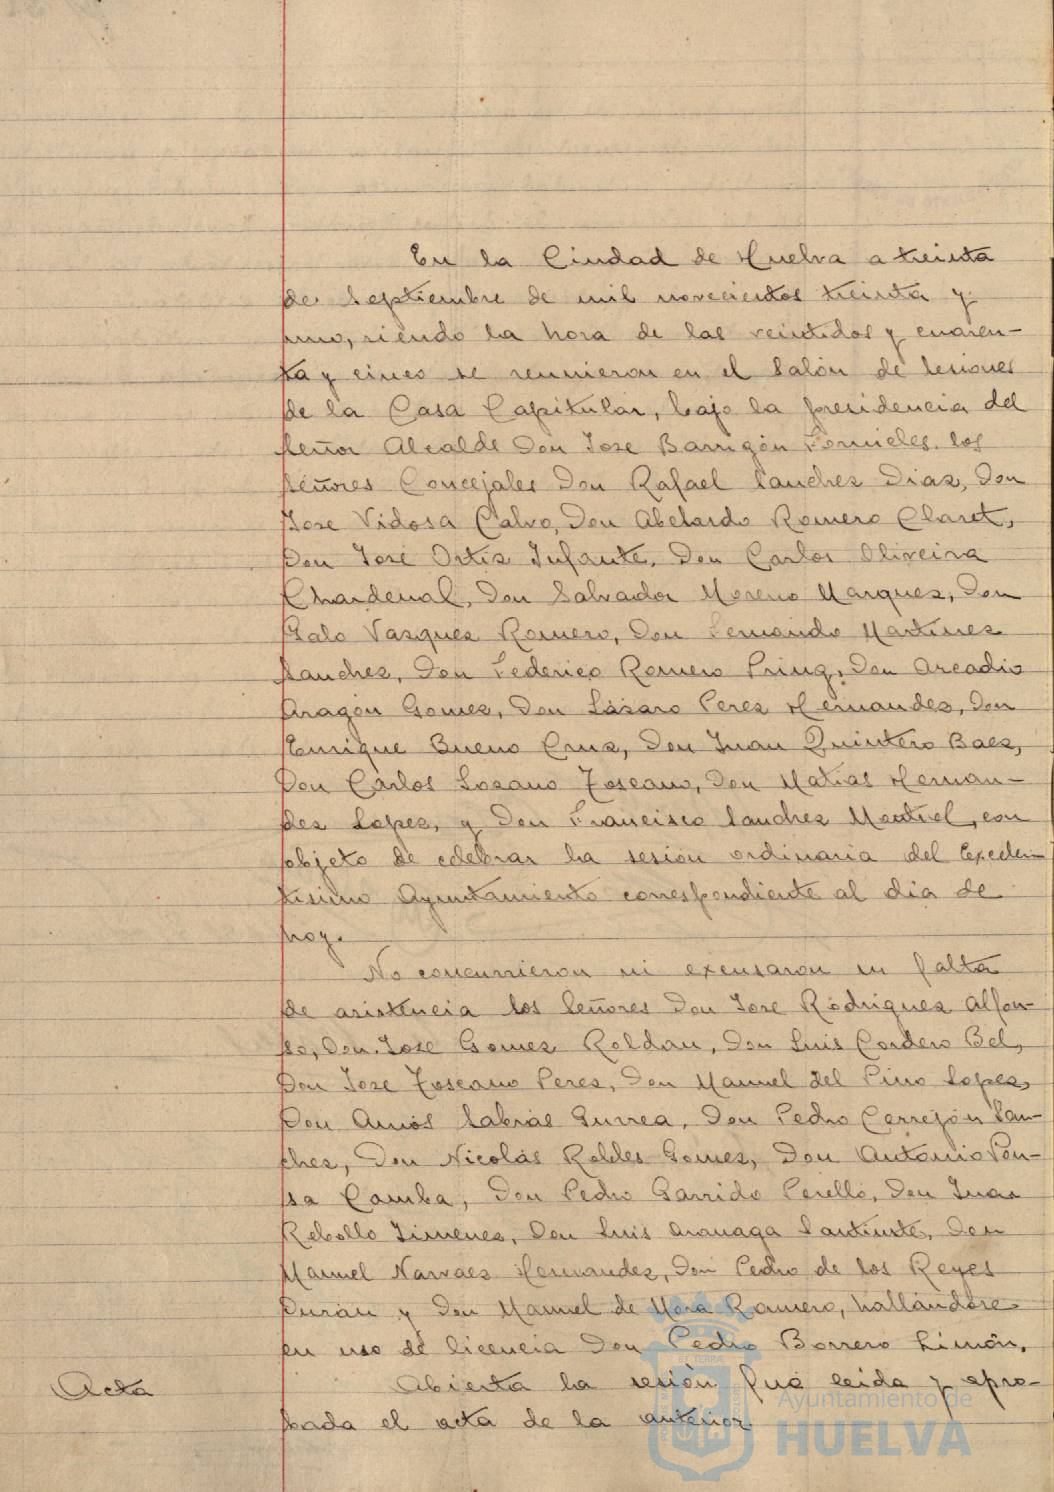 En la Ciudad de Huelva a treinta
de Septiembre de mil novecientos treinta y
uno, siendo la hora de las veintidos y cuaren-
ta y cinco se reunieron en el Salón de Sesiones
de la Casa Capitular, bajo la presidencia del
Señor Alcalde Don Jose Barrigón Fornieles, los
señores Concejales Don Rafael Sanchez Diaz, Don
Jose Vidosa Calvo, Don Abelardo Romero Claret,
Don José Ortiz Infante, Don Carlos Oliveira
Chardenal, Don Salvador Moreno Marquez, Don
Galo Vazquez Romero, Don Fernando Martinez
Sanchez, Don Federico Romero Pring, Don Arcadio
Aragón Gomez, Don Lázaro Perez Hernandez, Don
Enrique Bueno Cruz, Don Juan Quintero Baez,
Don Carlos Lozano Toscano, Don Matias Hernan-
dez Lopez, y Don Francisco Sanchez Montiel, con
objeto de celebrar la sesión ordinaria del Excelen-
tisimo Ayuntamiento correspondiente al dia de
hoy.
No concurrieron ni excusaron su falta
de asistencia los Señores Don Jose Rodriguez Alfon-
so, Don Jose Gomez Roldan, Don Luis Cordero Bel,
Don Jose Toscano Perez, Don Manuel del Pino Lopez,
Don Amós Sabrás Gurrea, Don Pedro Cerrejón San-
chez, Don Nicolás Robles Gomez, Don Antonio Pon-
sa Camba, Don Pedro Garrido Perelló, Don Juan
Rebollo Jimenez, Don Luis Aramaga Santiuste, Don
Manuel Narvaez Hernandez, Don Pedro de los Reyes
Durán y Don Manuel de Mora Romero, hallándose
en uso de licencia Don Pedro Borrero Limón.
Acta
Abierta la sesión fué leida y apro-
bada el acta de la anterior.
Ayuntamiento de
HUELVA